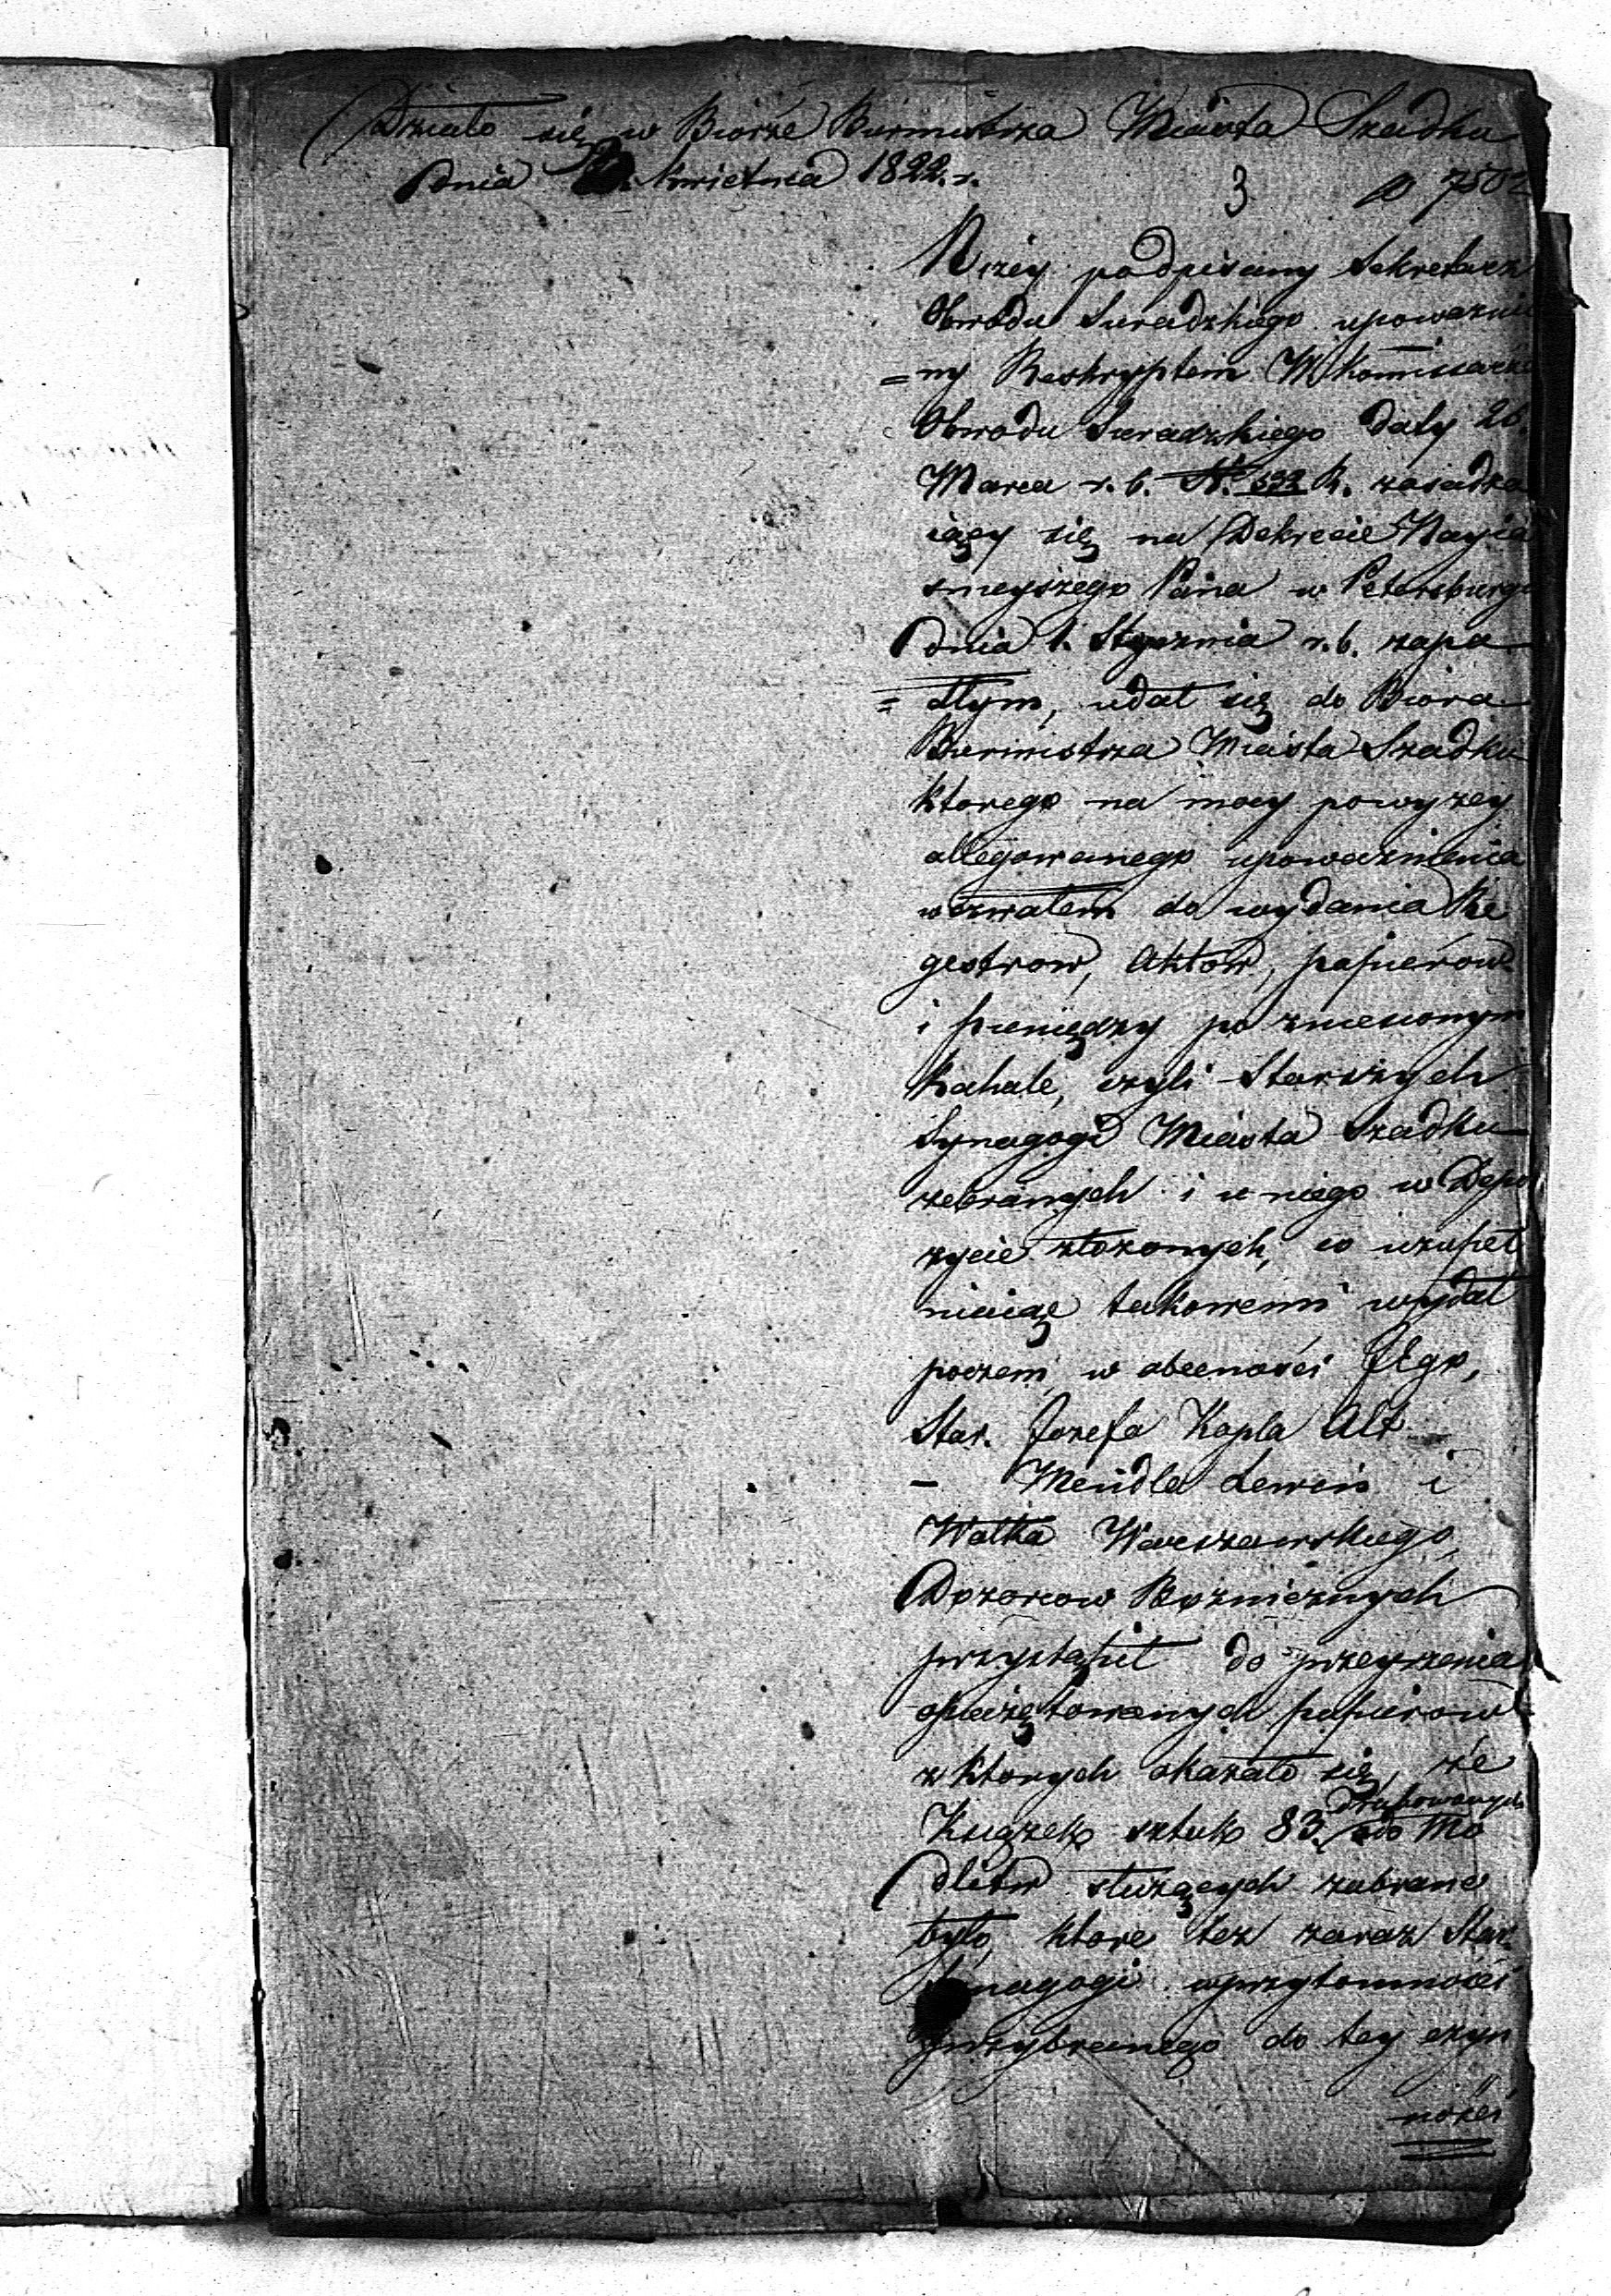 Działo się w Biórze Burmistrza Miasta Szadku
dnia Kwietnia 1822. r.
3 7502
Niżey podpisany Sekretarz
Obwodu Sieradzkiego upoważnio
=ny Reskryptem W Kommissarza
Obwodu Sieradzkiego daty 26.
Marca r. b. N. R. zasadza
iący się na Dekrecie Nayia
śnieyszego Pana w Petersburgu
dnia 1. Stycznia r. b. zapa
=dłym, udał się do Bióra
Burmistrza Miasta Szadku
ktorego na mocy powyżey
allegowanego upoważnienia
wezwałem do wydania Re
gestrow, Aktów, papierów
i pieniędzy po zniesionym
Kahale, czyli Starszych
Synagogi Miasta Szadku
zebranych i u niego w Depo
zycie złożonych, co uzupeł
niaiąc takowemi wydał
poczem w obecności
Star. Jozefa Kopla Alt
- Mendla Lewin i
Wolka Warszawskiego,
Dozorcow Bożnicznych
przystąpił do przeyrzenia
opieczętowanych papierow
z ktorych okazało się, że
drukowanych
Książek sztuk 83. do Mo
dlitw służących zabrane
było, ktore też zaraz Star.
Synagogi w przytomności
przybranego do tey czyn
ności